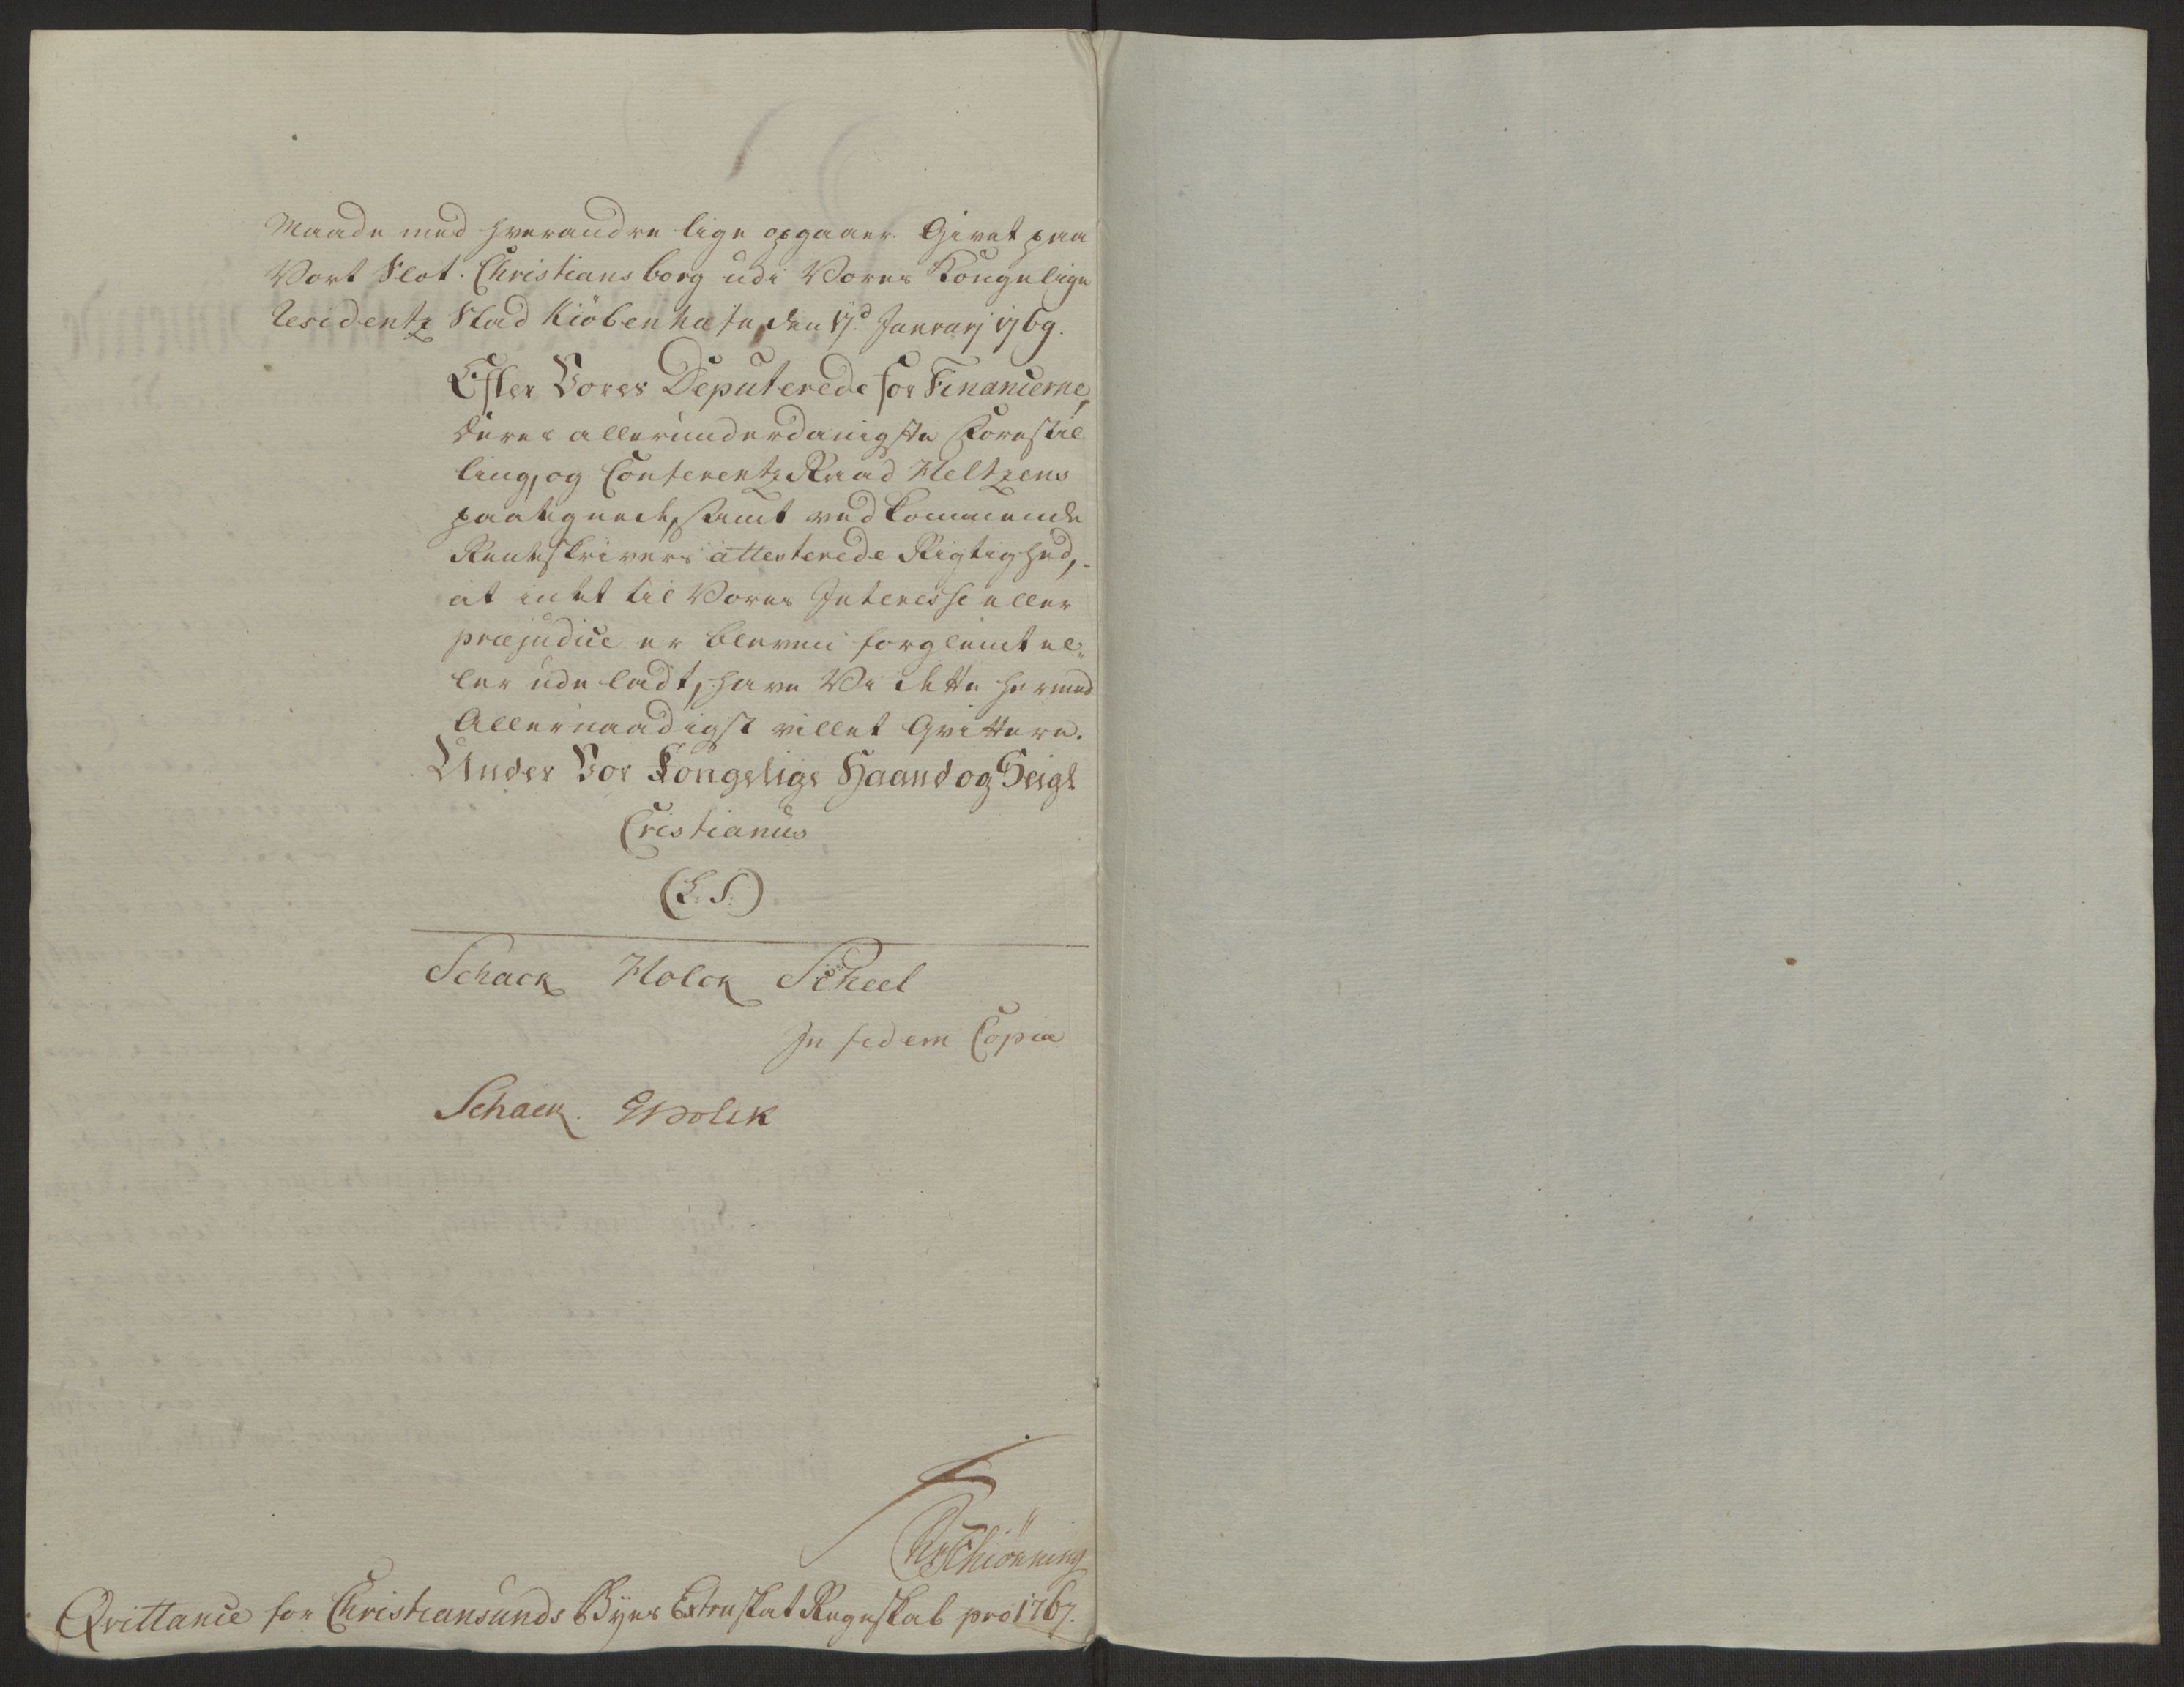 Maade med hverandre lige opgaaer. Givet paa
Vort Slot Christiansborg udi Vores Kongelige
Residentz Stad Kiöbenhafn, den 17.d Januarj 1769.
Efter Vores Deputerede for Financierne,
deres allerunderdanigste Forestil
ling, og Conferentz Raad Heltzens
paategnede, samt vedkommende
Renteskrivers attesterede Rigtighed,
at intet til Vores Interesse eller
præjudice er bleven forglemt el„
ler udeladt, have Vi dette hermed
Allernaadigst villet Qvittere.
Under Vor Kongelige Haand og Seigl
Cristianus
(L. S.)
Schack Holck Scheel
In fidem Copia
Schack. Holck
Schiönning
Qvittance for Christiansunds Byes Extraskat Regnskab pro 1767.